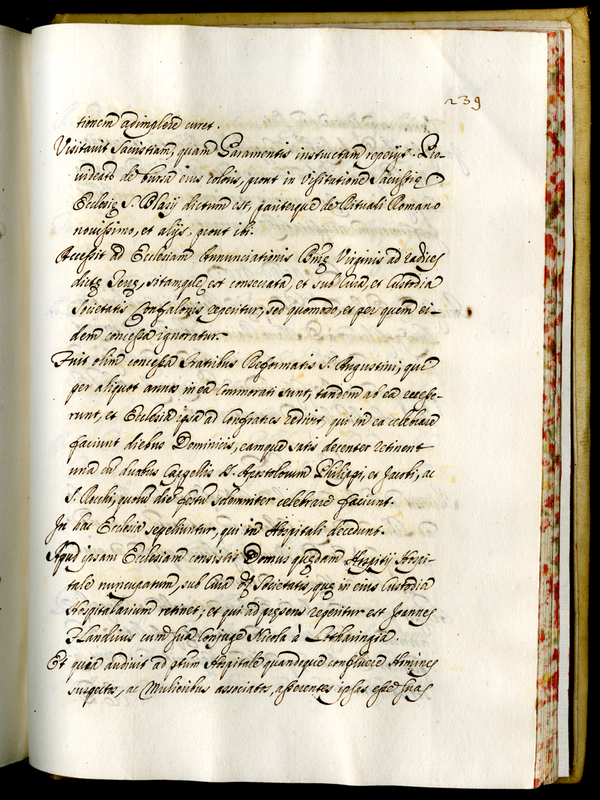 239
tionem adimplere curet.
Visitavit Sacristiam, quam Paramentis instructam reperijt. Pro-
videatr de bursa eius coloris, prout in Visitatione Sacristię
Ecclesię S. Blasij dictum est, pariterque de Rituali Romano
novissimo, et alijs, prout ibi.
Accessit ad Ecclesiam Annunciationis Bmę Virginis ad radices
dictę sitamque, est consecrata, et sub cura, et Custodia
Societatis Confalonis regeritur, sed quomodo, et per quem ei-
dem concessa ignoratur.
Fuit olim concessa Fratibus Reformatis S. Augustini, qui
per aliquot annos in ea commorati sunt, tandem ab ea recesse-
runt, et Ecclesia ipsa ad Confratres redivit, qui in ea celebrare
faciunt diebus Dominicis, eamque satis decenter retinent
una cu duabus Cappellis SS. Apostolorum Philippi, et Jacobi, ac
S. Rocchi, quoru die festu solemniter celebrare faciunt.
In hac Ecclesia sepelliuntur, qui in Hospitali decedunt.
Apud ipsam Ecclesiam consistit Domus quędam Hospitij Hospi-
tale nuncupatum, sub Cura Societatis, quę in eius Custodia
Hospitalarium retinet; et qui ad pręsens reperitur est Joannes
Flandrius cum sua Conjuge Nicola à Lotharingia.
Et quia audivit ad ptum Hospitale quandoque confluere Homines
suspectos, ac Mulieribus associatos, asserentes ipsas esse suas